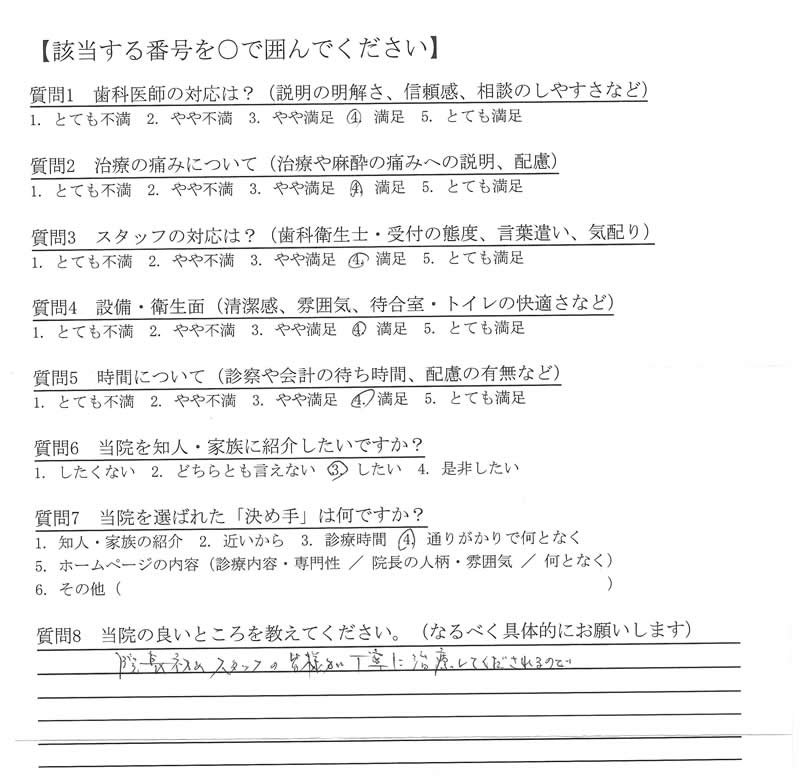 【該当する番号を○で囲んでください】
質問1 歯科医師の対応は？（説明の明解さ、信頼感、相談のしやすさなど）
1. とても不満 2. やや不満 3. やや満足 4. 満足 5. とても満足
質問2 治療の痛みについて（治療や麻酔の痛みへの説明、配慮）
1. とても不満 2. やや不満 3. やや満足 4. 満足 5. とても満足
質問3 スタッフの対応は？（歯科衛生士・受付の態度、言葉遣い、気配り）
1. とても不満 2. やや不満 3. やや満足 4. 満足 5. とても満足
質問4 設備・衛生面（清潔感、雰囲気、待合室・トイレの快適さなど）
1. とても不満 2. やや不満 3. やや満足 4. 満足 5. とても満足
質問5 時間について（診察や会計の待ち時間、配慮の有無など）
1. とても不満 2. やや不満 3. やや満足 4. 満足 5. とても満足
質問6 当院を知人・家族に紹介したいですか？
1. したくない 2. どちらとも言えない 3. したい 4. 是非したい
質問7 当院を選ばれた「決め手」は何ですか？
1. 知人・家族の紹介 2. 近いから 3. 診療時間 4. 通りがかりで何となく
5. ホームページの内容（診療内容・専門性 ／ 院長の人柄・雰囲気 ／ 何となく）
6. その他（ ）
質問8 当院の良いところを教えてください。（なるべく具体的にお願いします）
スタッフの皆様が丁寧に治療してくだされるので